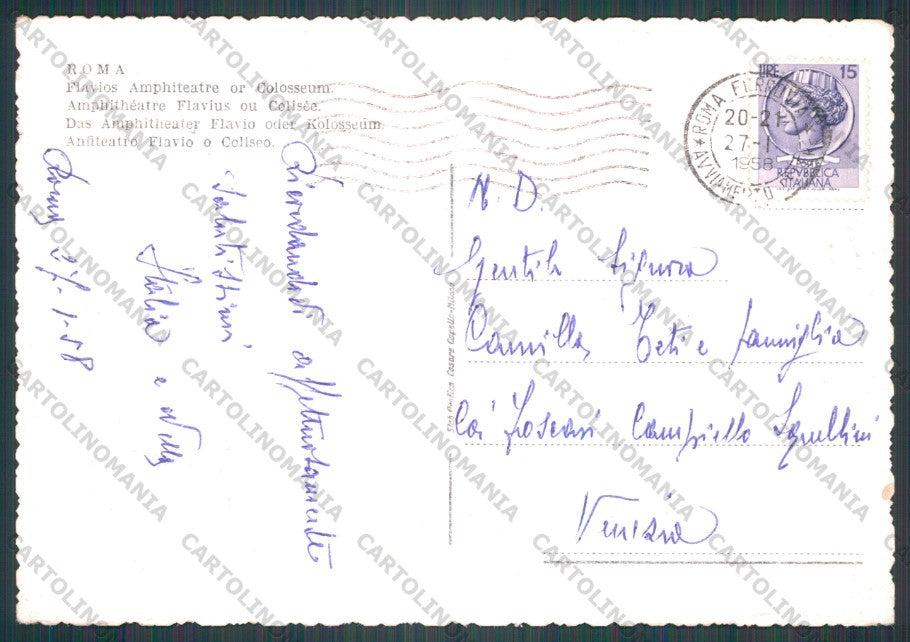 ROMA
Flavios Amphiteatre or Colosseum.
Amphithéatre Flavius ou Colisée.
Das Amphitheater Flavio oder Kolosseum.
Anfiteatro Flavio o Coliseo.
Roma 27-1-58
Ricordandoti affettuosamente
Salutissimi
Italia e Nella
Cesare Capello-Milano
LIRE 15
REPVBBLICA
ITALIANA
ROMA FERROVIA
20-21
27-1
1958
N. D.
Gentile Signora
Camilla Teti e famiglia
Cà Foscari Campiello Squellini
Venezia
CARTOLINOMANIA